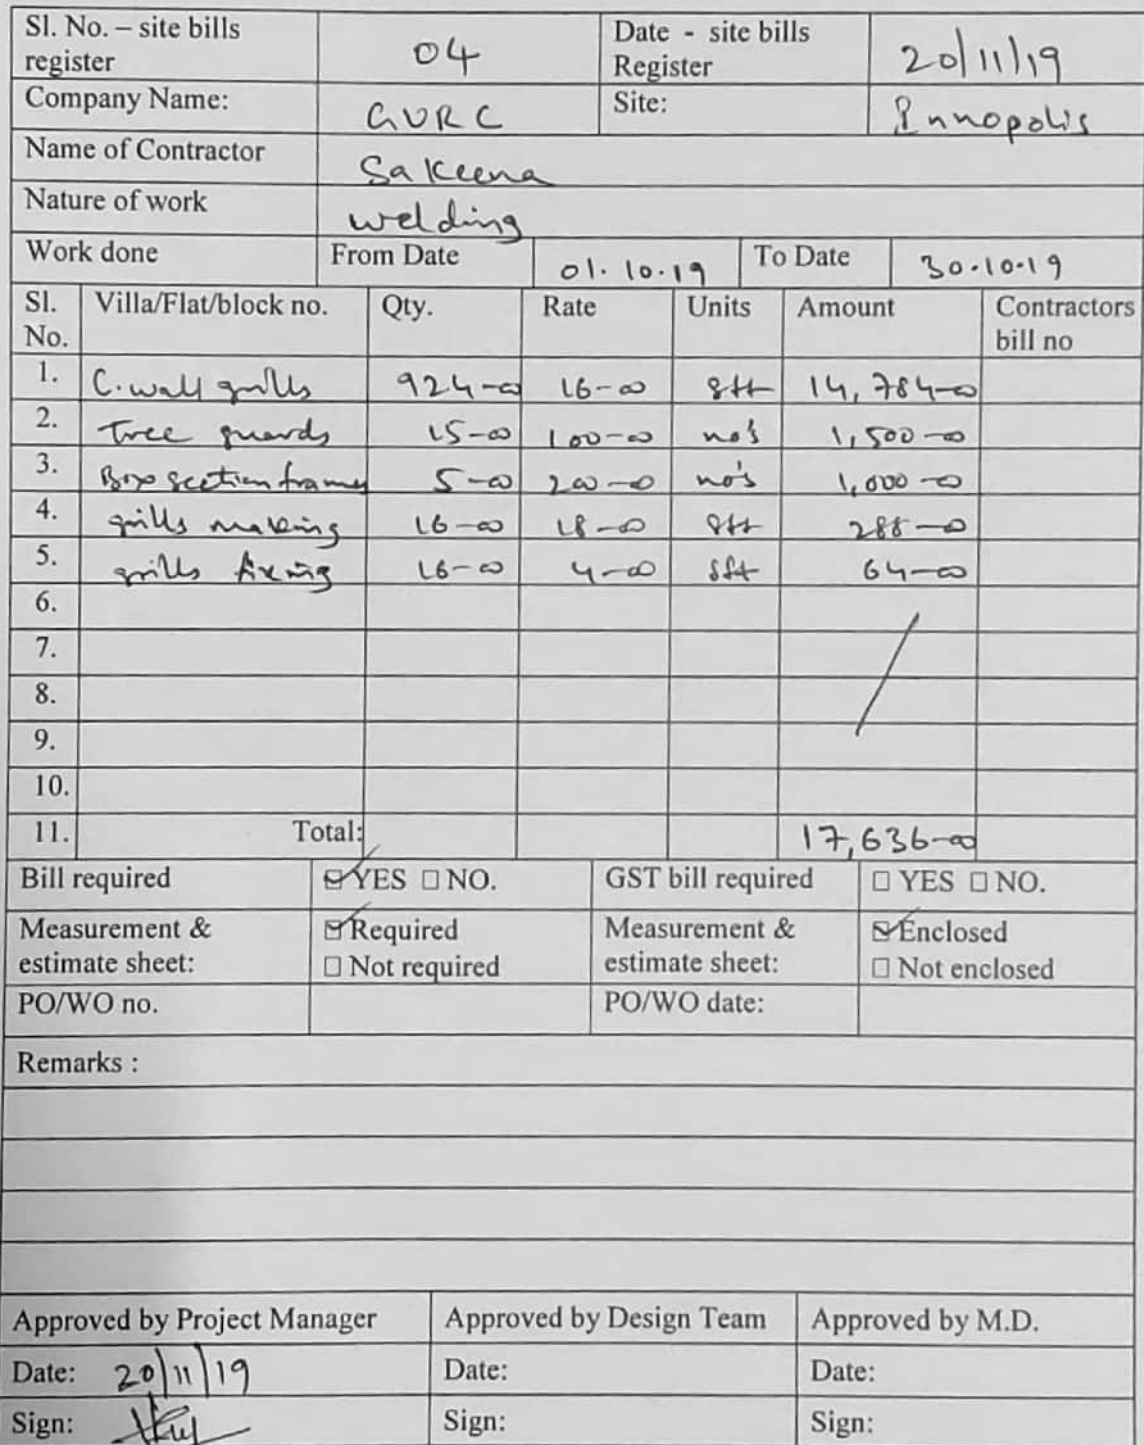 Sl. No. – site bills register 04 Date - site bills Register 20/11/19
Company Name: GVRC Site: Innopolis
Name of Contractor Sakeena
Nature of work welding
Work done From Date 01.10.19 To Date 30.10.19
Sl. No. Villa/Flat/block no. Qty. Rate Units Amount Contractors bill no
1. C.wall grills 924-00 16-00 sft 14,784-00
2. Tree guards 15-00 100-00 no's 1,500-00
3. Box section frames 5-00 200-00 no's 1,000-00
4. grills making 16-00 18-00 sft 288-00
5. grills fixing 16-00 4-00 sft 64-00
6.
7.
8.
9.
10.
11. Total: 17,636-00
Bill required ☑ YES □ NO. GST bill required □ YES □ NO.
Measurement & estimate sheet: ☑ Required □ Not required Measurement & estimate sheet: ☑ Enclosed □ Not enclosed
PO/WO no. PO/WO date:
Remarks :
Approved by Project Manager Approved by Design Team Approved by M.D.
Date: 20/11/19 Date: Date:
Sign: Sign: Sign: